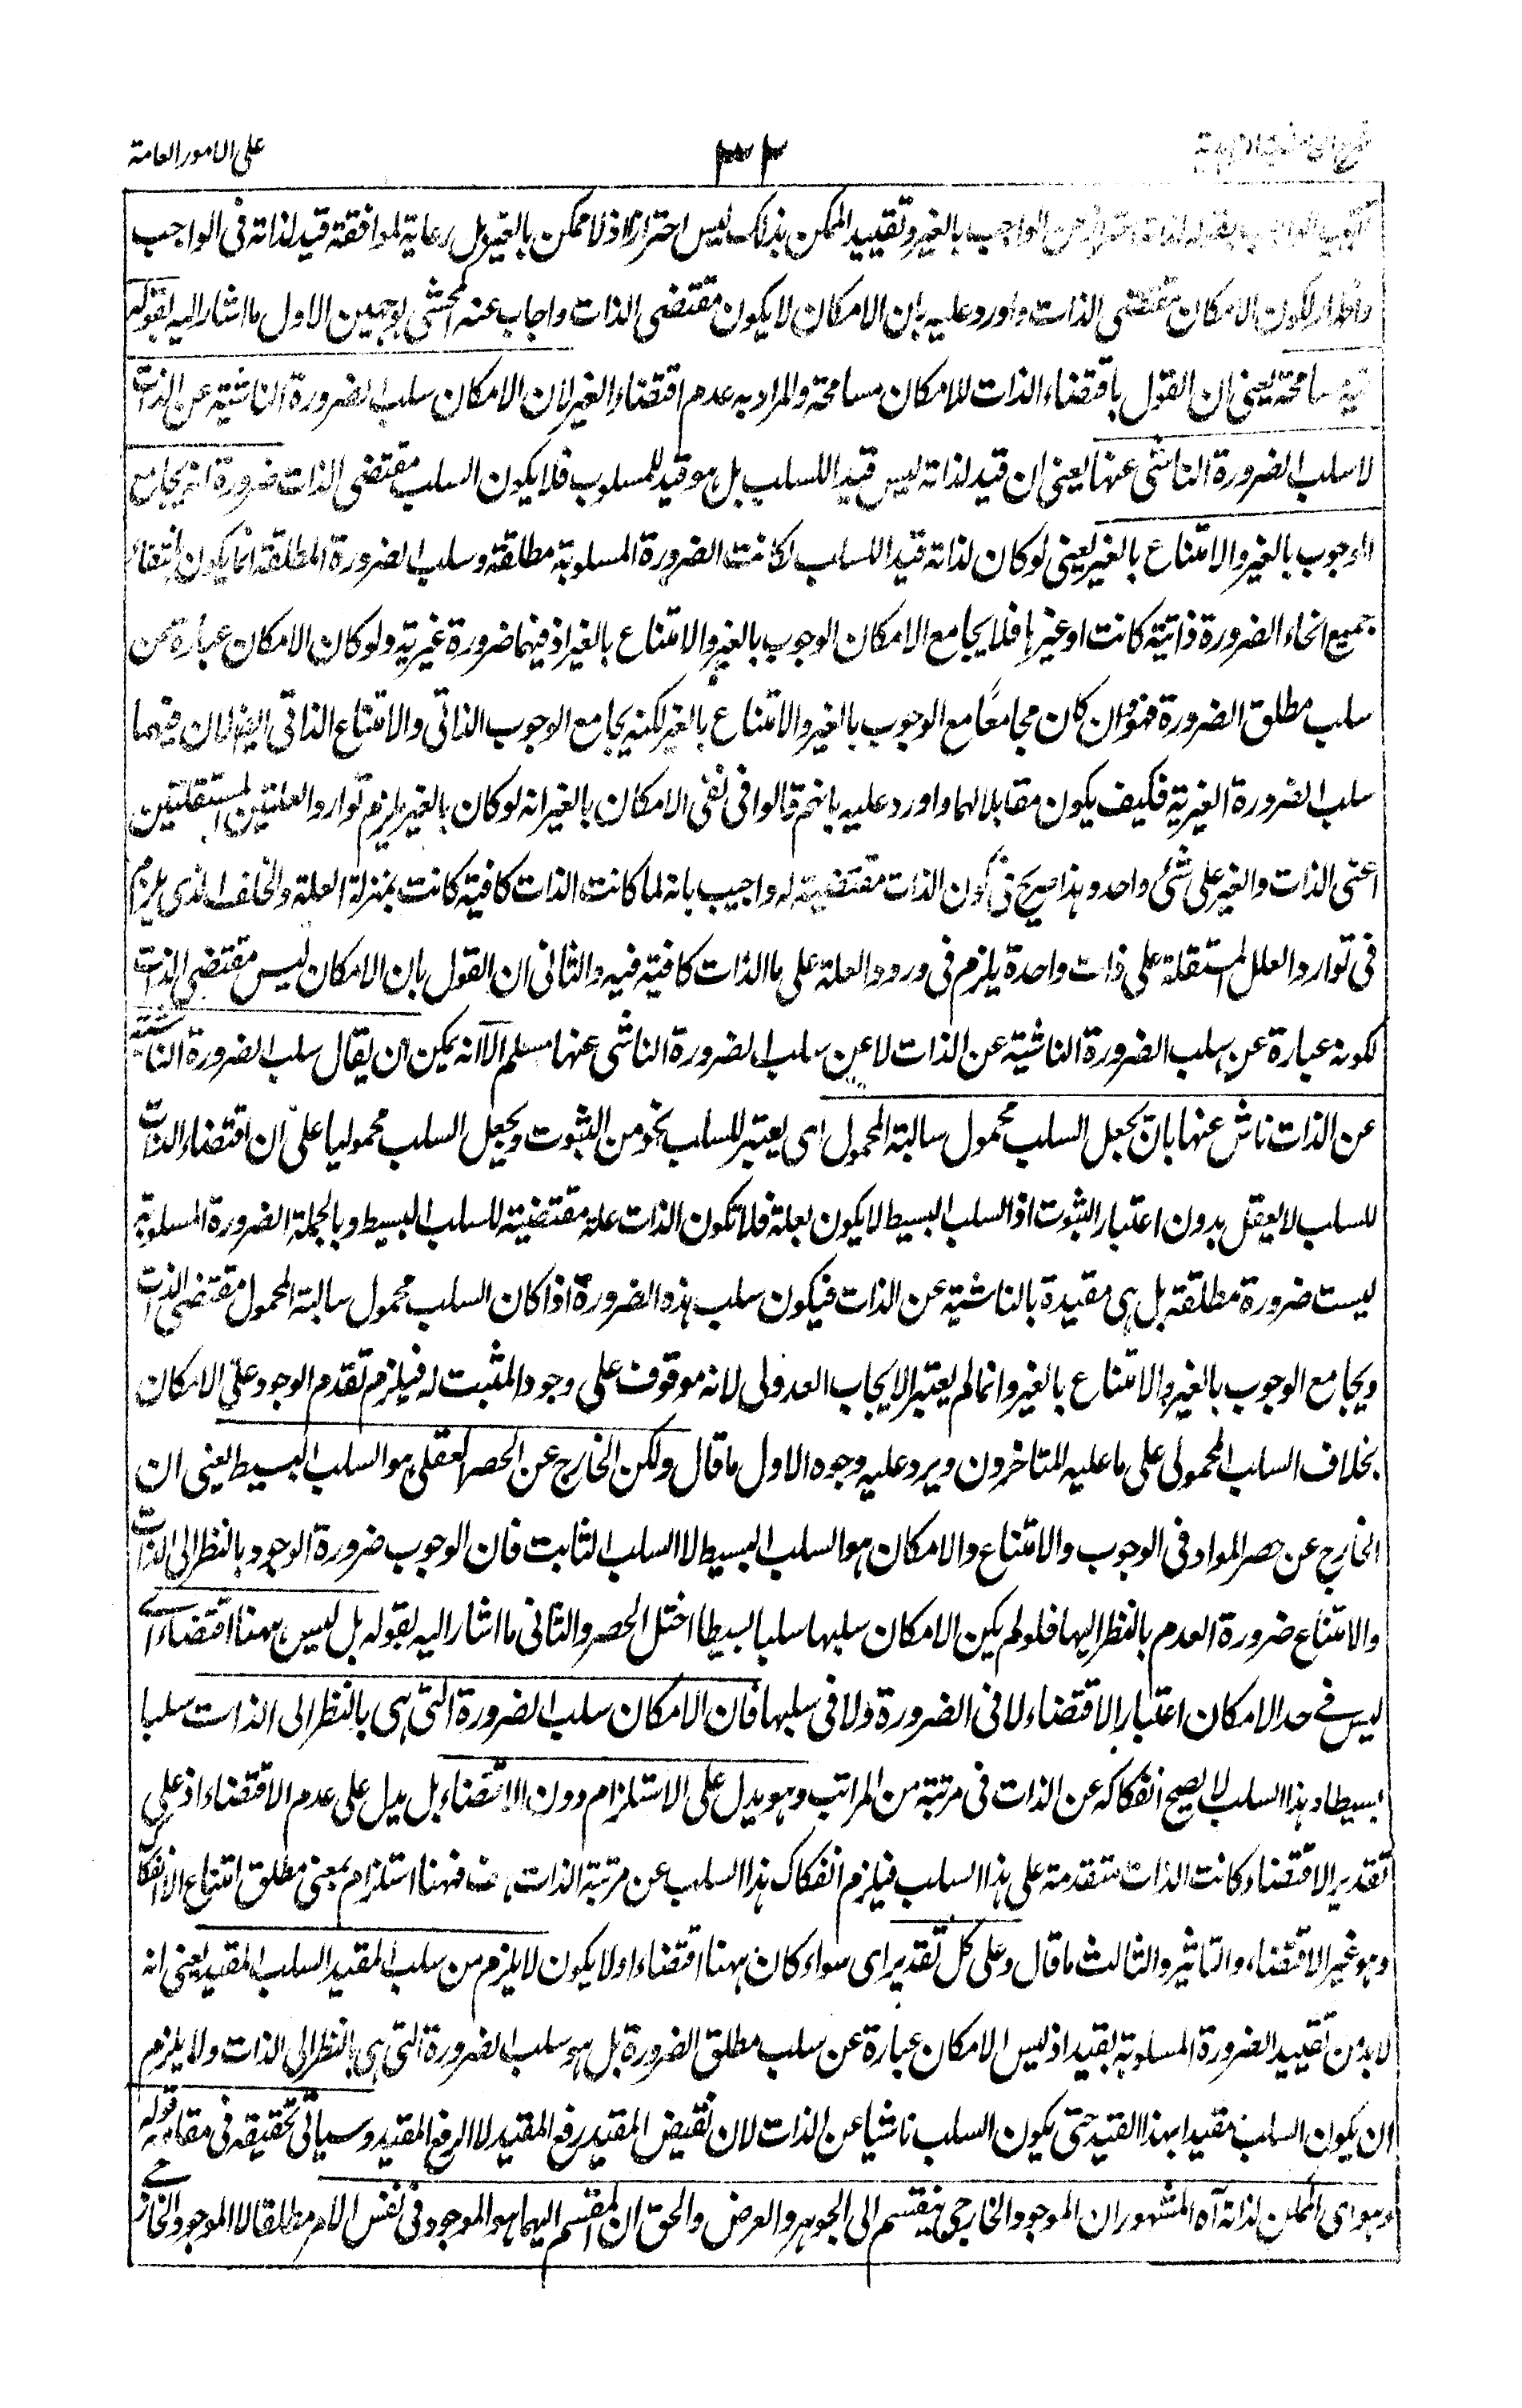 على الامور العامة
٣٢
بالغير وتقييد الممكن بذلك ليس احترازا اذ لا ممكن بالغير بل رعاية لموافقة قيد لذاته فى الواجب
لكون الامكان مقتضى الذات واورد عليه بان الامكان لا يكون مقتضى الذات واجاب عنه المحشى بوجهين الاول ما اشار اليه بقوله
مسامحة يعنى ان القول باقتضاء الذات للامكان مسامحة والمراد به عدم اقتضاء الغير لان الامكان سلب الضرورة الناشية عن الذات
لا سلب الضرورة الناشى عنها يعنى ان قيد لذاته ليس قيدا للسلب بل هو قيد للمسلوب فلا يكون السلب مقتضى الذات ضرورة انه يجامع
الوجوب بالغير والامتناع بالغير يعنى لو كان لذاته قيدا للسلب لكانت الضرورة المسلوبة مطلقة وسلب الضرورة المطلقة انما يكون بانتفاء
جميع انحاء الضرورة ذاتية كانت او غيرها فلا يجامع الامكان الوجوب بالغير والامتناع بالغير اذ فيهما ضرورة غيرية ولو كان الامكان عبارة عن
سلب مطلق الضرورة فهو وان كان مجامعًا مع الوجوب بالغير والامتناع بالغير لكنه يجامع الوجوب الذاتى والامتناع الذاتى ايضا لان فيهما
سلب الضرورة الغيرية فكيف يكون مقابلا لهما واورد عليه بانهم قالوا فى نفى الامكان بالغير انه لو كان بالغير يلزم توارد العلتين المستقلتين
اعنى الذات والغير على شئ واحد وهذا صريح فى كون الذات مقتضية له واجيب بانه لما كانت الذات كافية كانت بمنزلة العلة والخلف الذى يلزم
فى توارد العلل المستقلة على ذات واحدة يلزم فى ورود العلة على ما الذات كافية فيه والثانى ان القول بان الامكان ليس مقتضى الذات
لكونه عبارة عن سلب الضرورة الناشية عن الذات لا عن سلب الضرورة الناشى عنها مسلم الا انه يمكن ان يقال سلب الضرورة الناشية
عن الذات ناش عنها بان يجعل السلب محمول سالبة المحمول اى يعتبر للسلب نحو من الثبوت ويجعل السلب محموليا على ان اقتضاء الذات
للسلب لا يعقل بدون اعتبار الثبوت اذ السلب البسيط لا يكون بعلة فلا تكون الذات علة مقتضية للسلب البسيط وبالجملة الضرورة المسلوبة
ليست ضرورة مطلقة بل هى مقيدة بالناشية عن الذات فيكون سلب هذه الضرورة اذا كان السلب محمول سالبة المحمول مقتضى الذات
ويجامع الوجوب بالغير والامتناع بالغير وانما لم يعتبر الايجاب العدولى لانه موقوف على وجود المثبت له فيلزم تقدم الوجود على الامكان
بخلاف السلب المحمولى على ما عليه المتاخرون ويرد عليه وجوه الاول ما قال ولكن الخارج عن الحصر العقلى هو السلب البسيط يعنى ان
الخارج عن حصر المواد فى الوجوب والامتناع والامكان هو السلب البسيط لا السلب الثابت فان الوجوب ضرورة الوجود بالنظر الى الذات
والامتناع ضرورة العدم بالنظر اليها فلو لم يكن الامكان سلبها سلبا بسيطا اختل الحصر والثانى ما اشار اليه بقوله بل ليس ههنا اقتضاء اى
ليس فى حد الامكان اعتبار الاقتضاء لا فى الضرورة ولا فى سلبها فان الامكان سلب الضرورة التى هى بالنظر الى الذات سلبا
بسيطا وهذا السلب لا يصح انفكاكه عن الذات فى مرتبة من المراتب وهو يدل على الاستلزام دون الاقتضاء بل يدل على عدم الاقتضاء اذ على
تقدير الاقتضاء كانت الذات متقدمة على هذا السلب فيلزم انفكاك هذا السلب عن مرتبة الذات هف فههنا استلزام بمعنى مطلق امتناع الانفكاك
وهو غير الاقتضاء والتاثير والثالث ما قال وعلى كل تقدير اى سواء كان ههنا اقتضاء او لا يكون لا يلزم من سلب المقيد السلب المقيد يعنى انه
لا بد من تقييد الضرورة المسلوبة بقيد اذ ليس الامكان عبارة عن سلب مطلق الضرورة بل هو سلب الضرورة التى هى بالنظر الى الذات ولا يلزم
ان يكون السلب مقيدا بهذا القيد حتى يكون السلب ناشيا عن الذات لان نقيض المقيد رفع المقيد لا الرفع المقيد وسياتى تحقيقه فى مقامه قوله
وهو اى الممكن لذاته آه المشهور ان الموجود الخارجى ينقسم الى الجوهر والعرض والحق ان المقسم اليهما هو الموجود فى نفس الامر مطلقا لا الموجود الخارجى